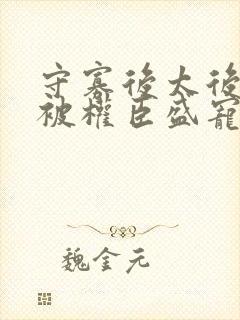 守寡後太後
被權臣盛寵
魏金元